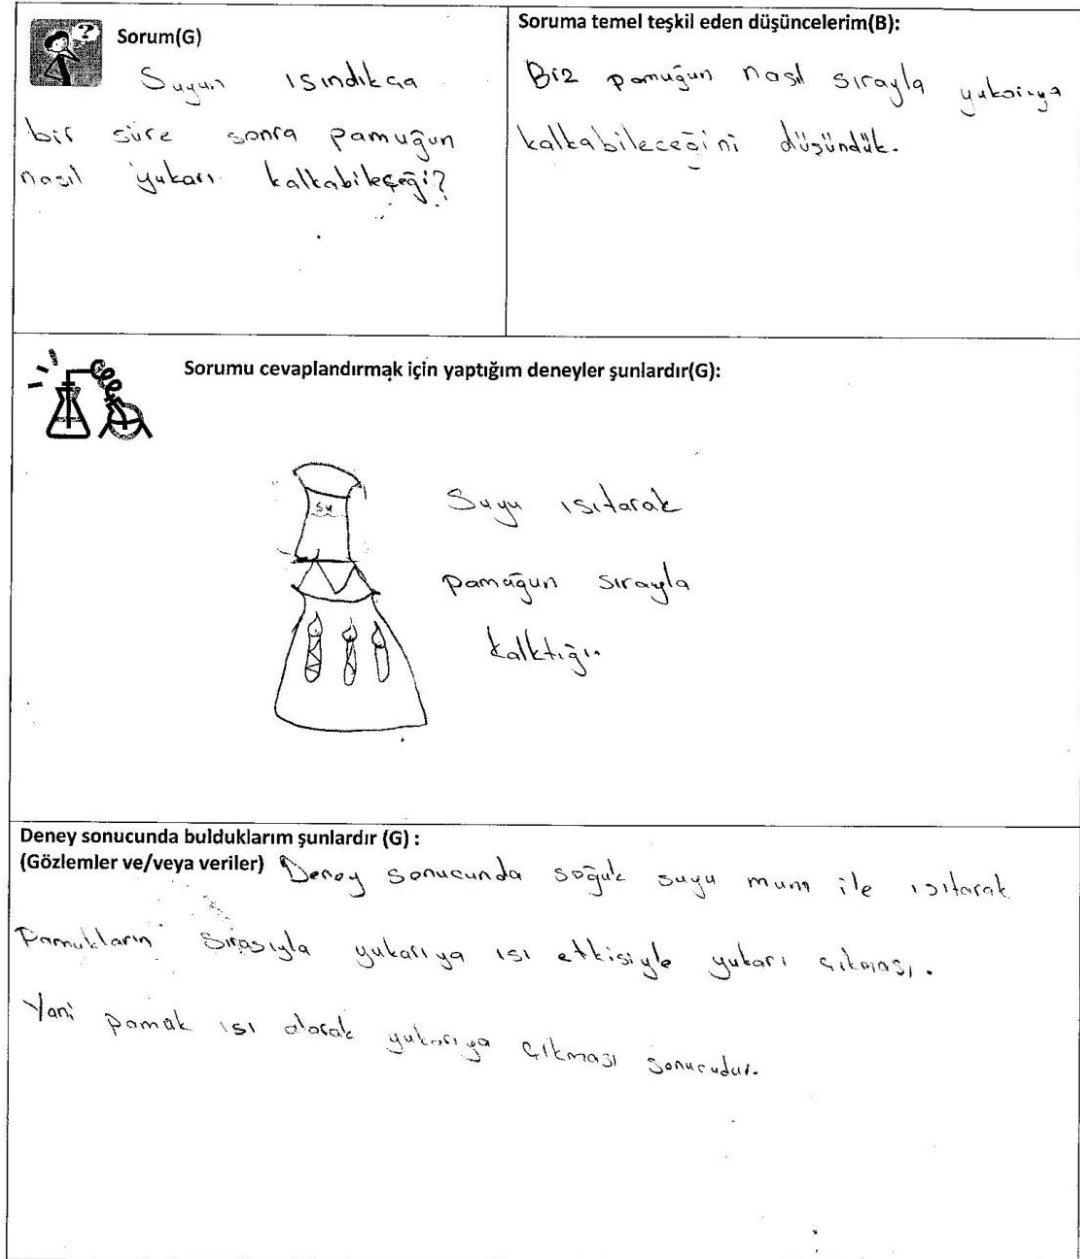 Sorum(G)
Suyun ısındıkça
bir süre sonra pamuğun
nasıl yukarı kalkabileçeği?
Soruma temel teşkil eden düşüncelerim(B):
Biz pamuğun nasıl sırayla yukarıya
kalkabileceğini düşündük.
Sorumu cevaplandırmak için yaptığım deneyler şunlardır(G):
Su
Suyu ısıtarak
pamuğun sırayla
kalktığı.
Deney sonucunda bulduklarım şunlardır (G) :
(Gözlemler ve/veya veriler) Deney sonucunda soğuk suyu mum ile ısıtarak
Pamukların sırasıyla yukarıya ısı etkisiyle yukarı çıkması.
Yani pamuk ısı alarak yukarıya çıkması sonucudur.